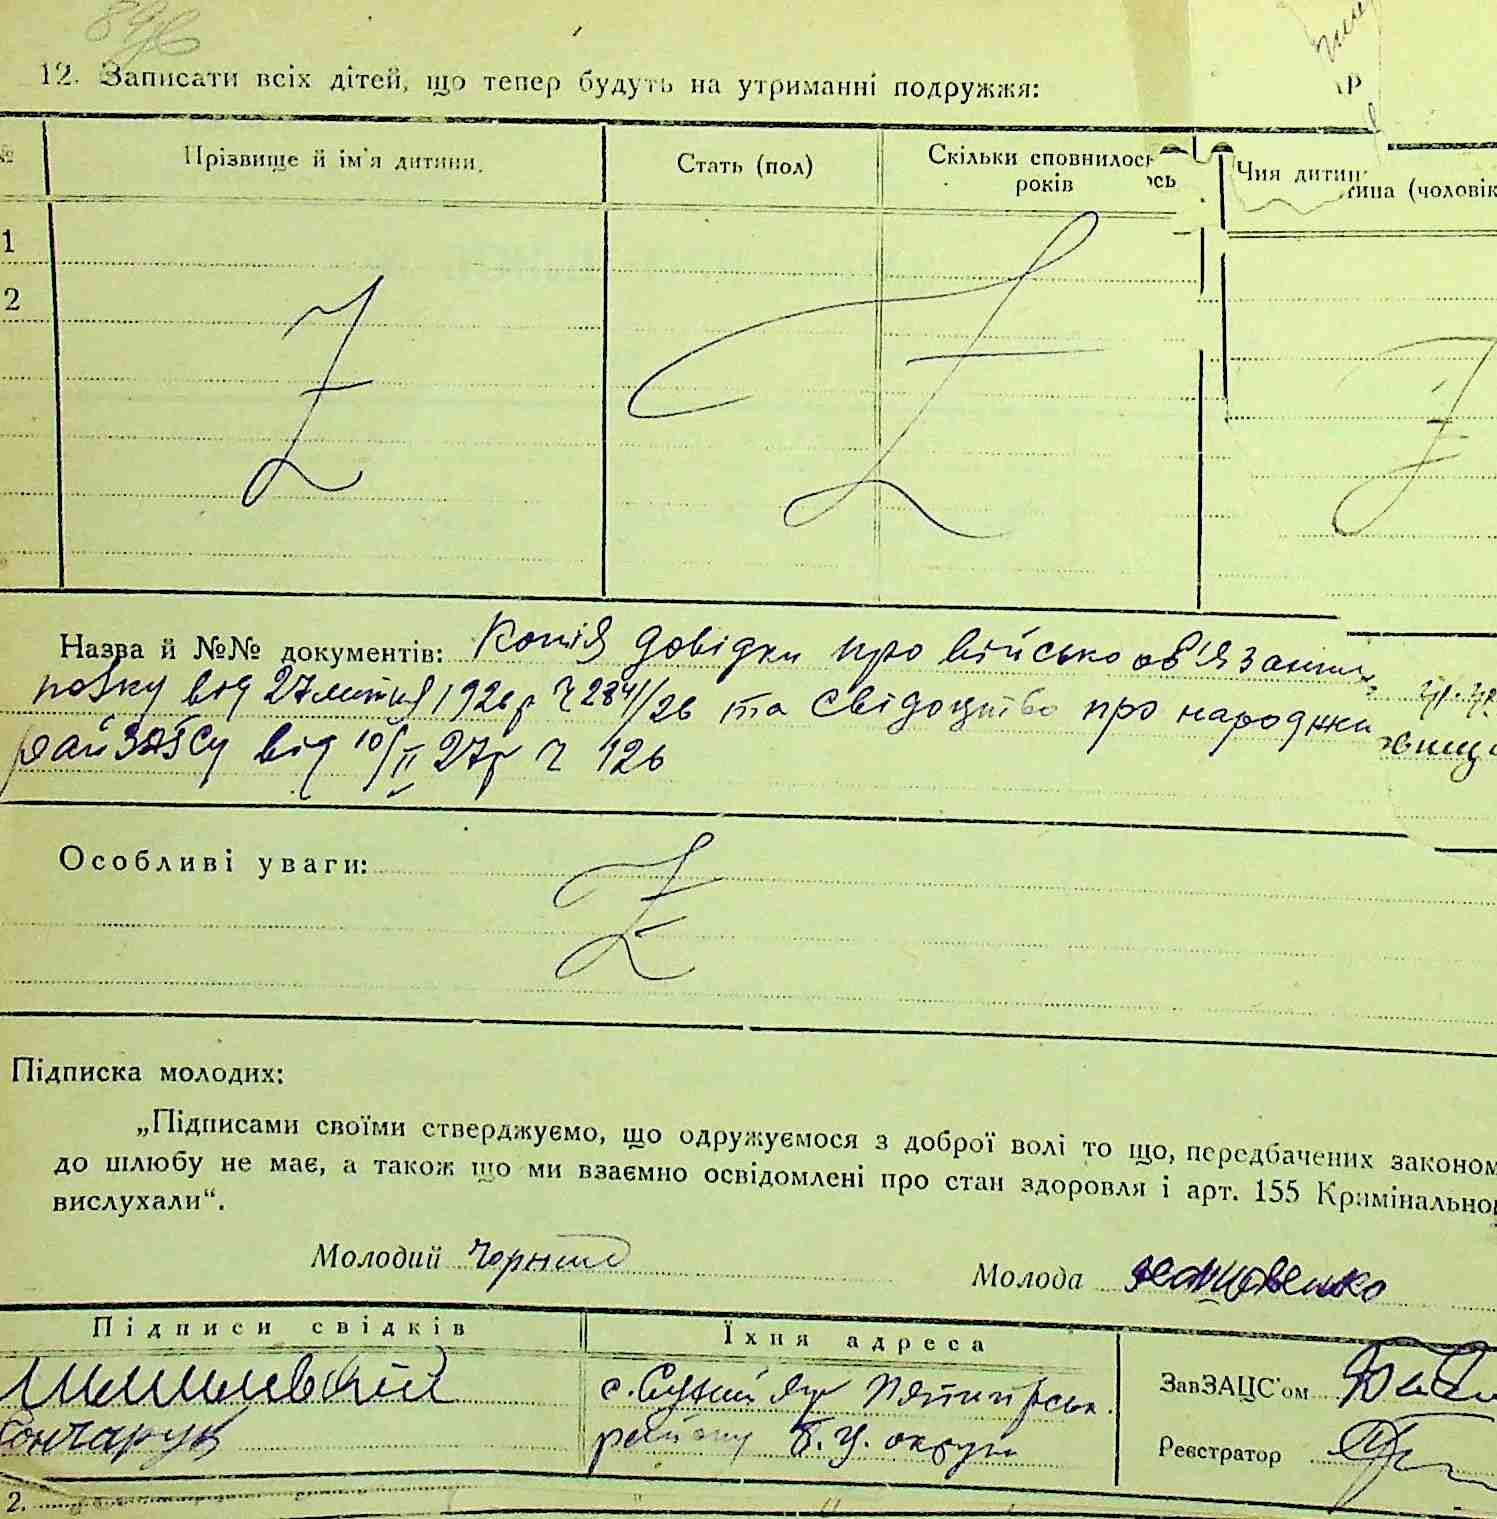 12. Записати всіх дітей, що тепер будуть на утриманні подружжя:
№ Прізвище й ім'я дитини. Стать (пол) Скільки сповнилось років Чия дитина (чоловік
1
2
Назва й №№ документів: Копія довідки про військо обв'язання
від 27 лютня 1926 р Ч 2841/26 та свідоцтво про народжен
райЗАГСу від 10/II 27р Ч 126
Особливі уваги:
Підписка молодих:
„Підписами своїми стверджуємо, що одружуємося з доброї волі то що, передбачених законом
до шлюбу не має, а також що ми взаємно освідомлені про стан здоровля і арт. 155 Кримінальног
вислухали“.
Молодий Молода
Підписи свідків Їхня адреса
ЗавЗАЦС'ом
с. Сухий Яр Пятигірськ.
Гончарук району Б. Ц. округи
Реєстратор
2.